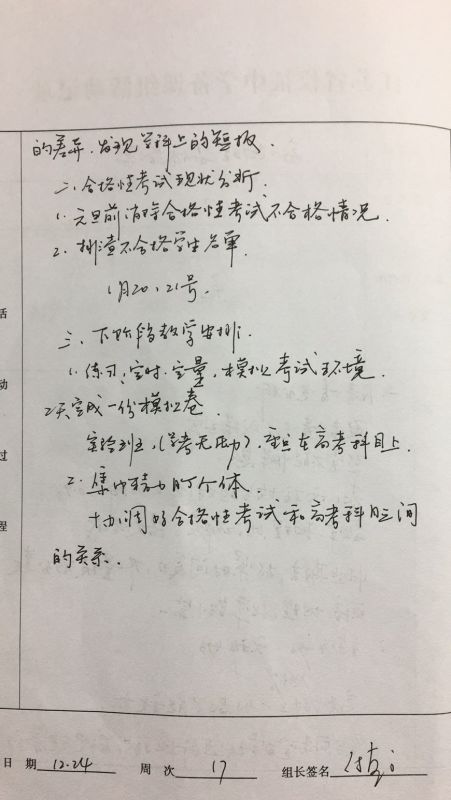 的差异、发现学科上的短板.
二、合格性考试现状分析.
1. 元旦前消除合格性考试不合格情况.
2. 排查不合格学生名单.
1月20、21号.
三、下阶段教学安排.
1. 练习:定时.定量,模拟考试环境.
2天完成一份模拟卷
实验班主,(学考无压力),重点在高考科目上.
2. 集中精力盯个体
协调好合格性考试和高考科目之间
的关系.
活
动
过
程
日 期 12.24 周 次 17 组长签名